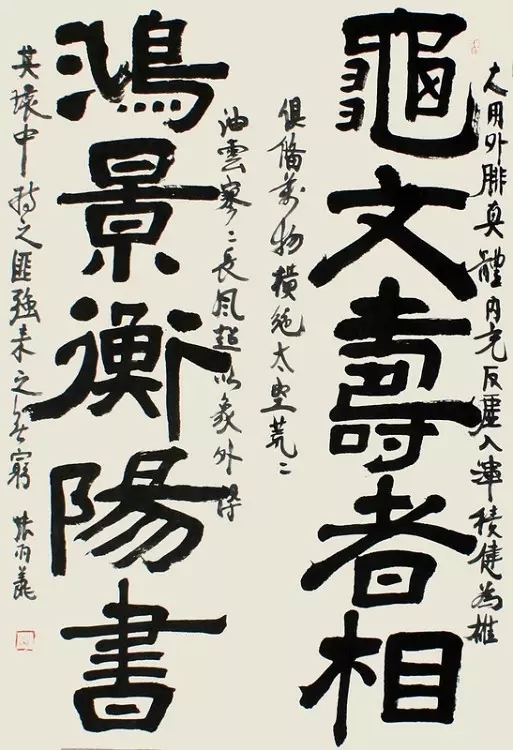 大用外腓真體内充反虛入渾積健為雄
龜文壽者相
俱備萬物橫絕太空荒〻
油雲寥〻長风超以象外得
鴻景衡陽書
其環中持之匪強来之無窮